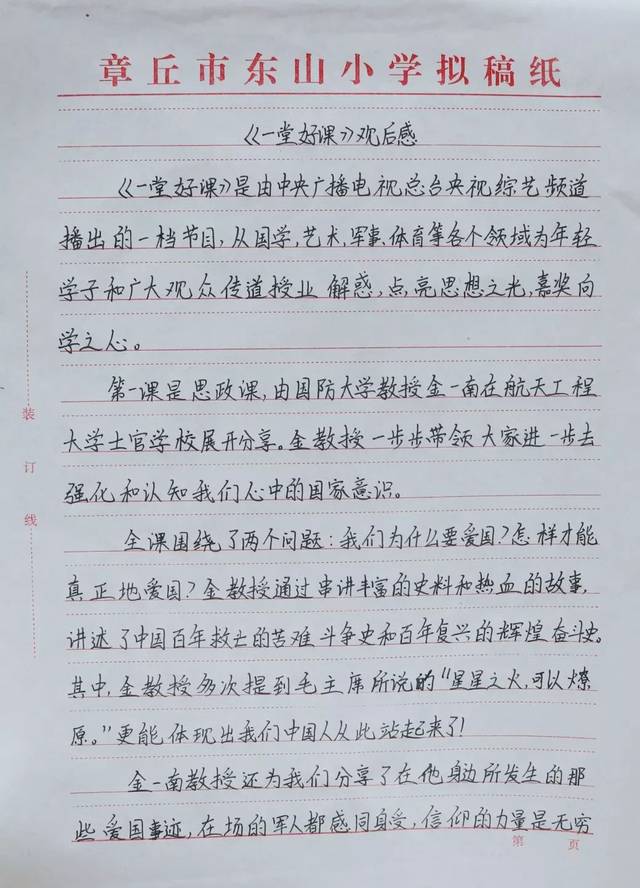 章丘市东山小学拟稿纸
《一堂好课》观后感
《一堂好课》是由中央广播电视总台央视综艺频道
播出的一档节目,从国学,艺术,军事、体育等各个领域为年轻
学子和广大观众传道授业解惑,点亮思想之光,嘉奖向
学之心。
第一课是思政课,由国防大学教授金一南在航天工程
大学士官学校展开分享。金教授一步步带领大家进一步去
强化和认知我们心中的国家意识。
全课围绕了两个问题:我们为什么要爱国?怎样才能
真正地爱国?金教授通过串讲丰富的史料和热血的故事,
讲述了中国百年救亡的苦难斗争史和百年复兴的辉煌奋斗史。
其中,金教授多次提到毛主席所说的“星星之火,可以燎
原。”更能体现出我们中国人从此站起来了!
金一南教授还为我们分享了在他身边所发生的那
些爱国事迹,在场的军人都感同身受,信仰的力量是无穷
装
订
线
第 页